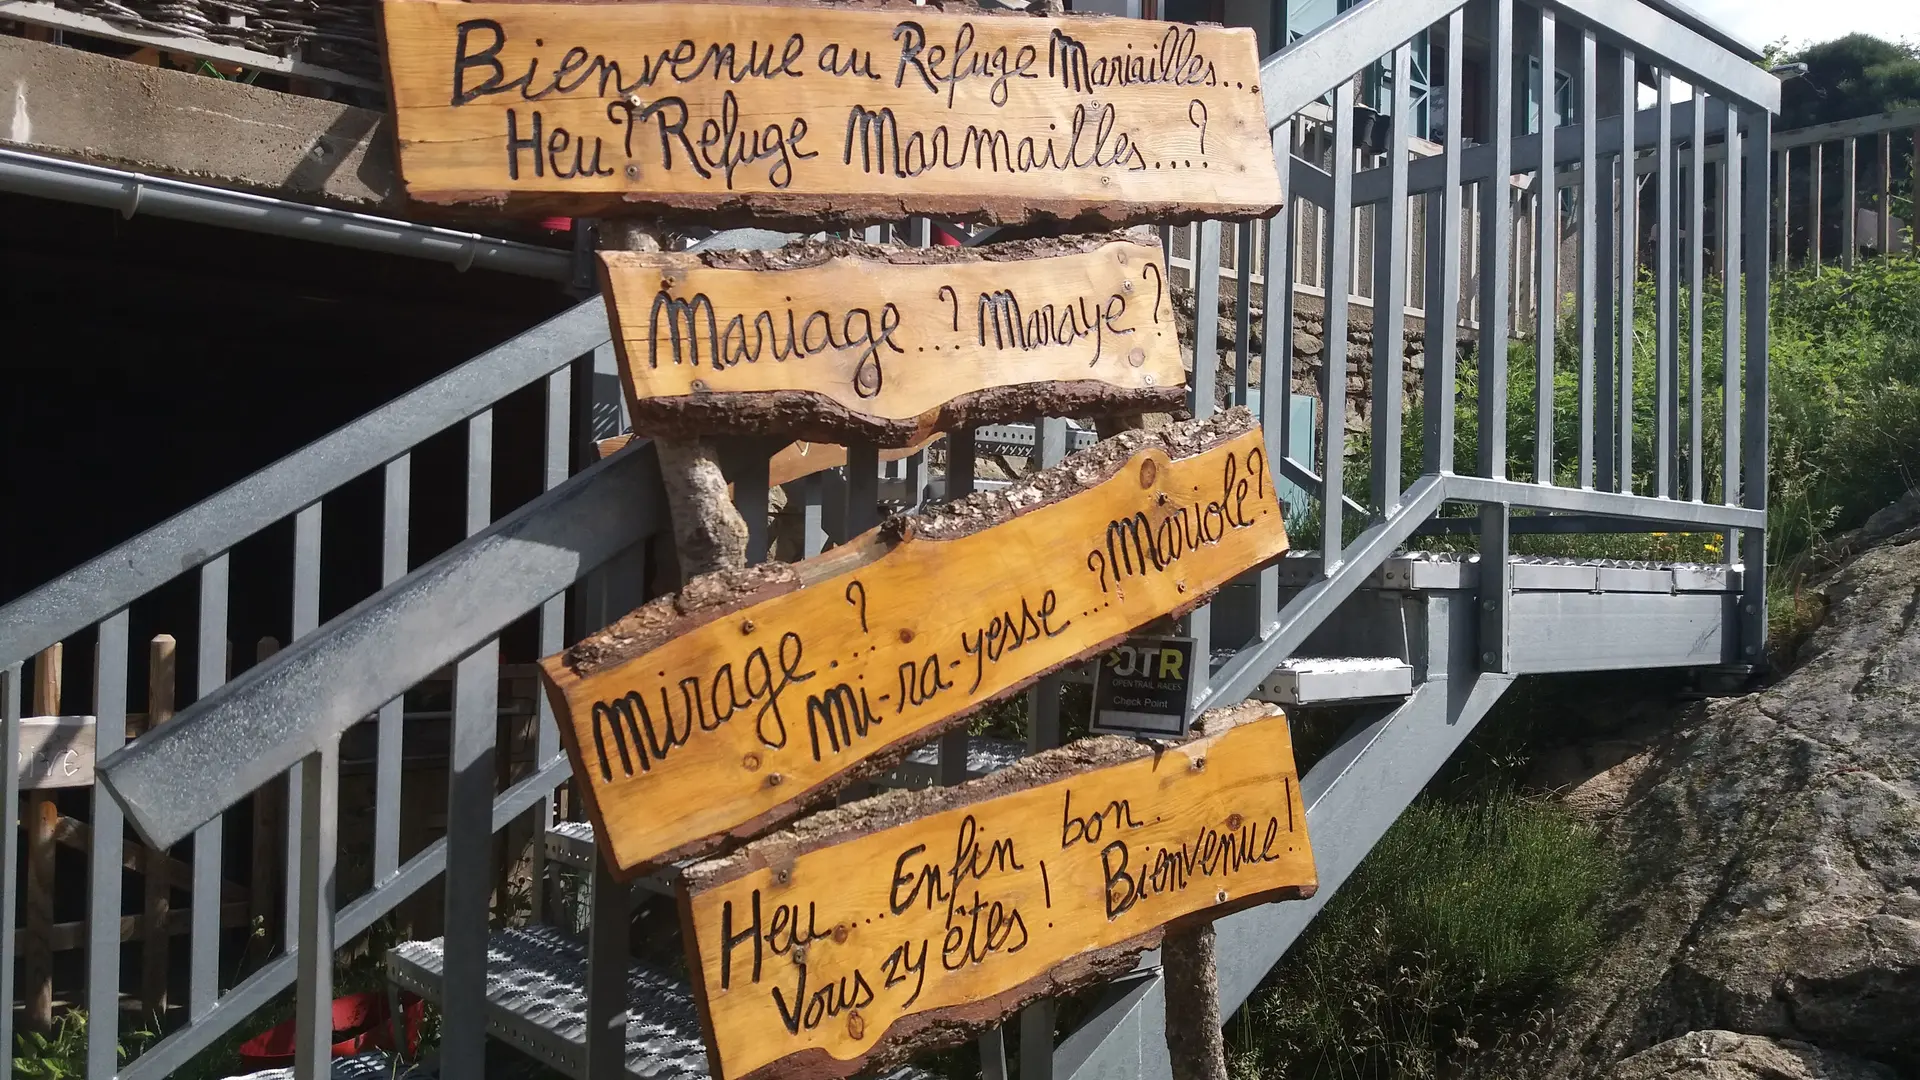 Bienvenue au Refuge Mariailles...
Heu? Refuge Marmailles...?
Mariage...? Maraye?
Mirage...?
Mi-ra-yesse...? Mariole?
OTR
OPEN TRAIL RACES
Check Point
Heu...Enfin bon.
Vous zy êtes! Bienvenue!